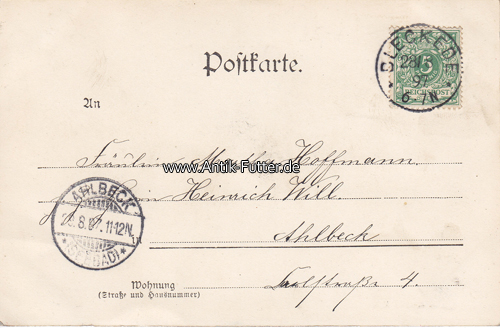 Postkarte.
BLECKEDE
28/
97
6-7N
5
REICHSPOST
An
Fräulein Martha Hoffmann,
www.Antik-Futter.de
Heinrich Will.
AHLBECK
8.97.11-12N.
(SEEBAD)
Ahlbeck
Wohnung
(Straße und Hausnummer)
4.